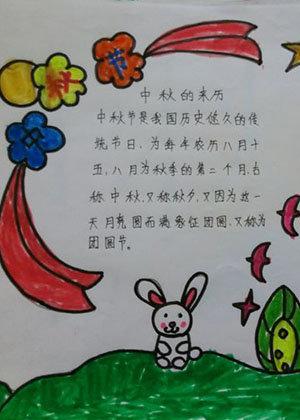 中秋节
中秋的来历
中秋节是我国历史悠久的传
统节日、为每年农历八月十
五,八月为秋季的第二个月,古
称中秋,又称秋夕,又因为这一
天月亮圆而满象征团圆,又称为
团圆节。